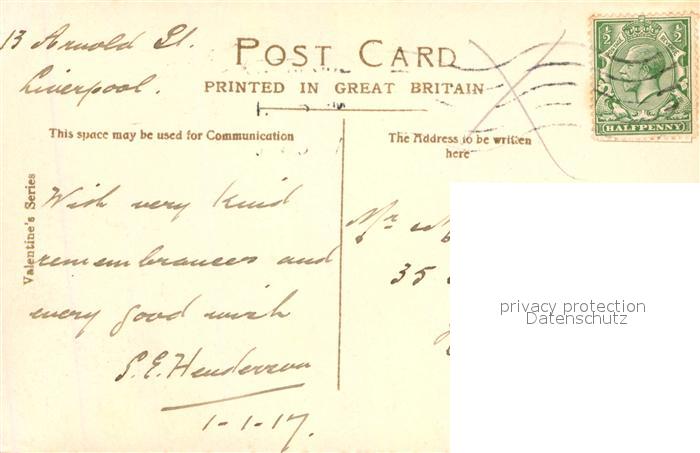 13 Arnold St.
Liverpool.
POST CARD
PRINTED IN GREAT BRITAIN
½ ½
HALFPENNY
This space may be used for Communication
The Address to be written
here
Valentine's Series
With very kind
remembrances and
every good wish
S. E. Henderson
1-1-17.
Mr
35
privacy protection
Datenschutz